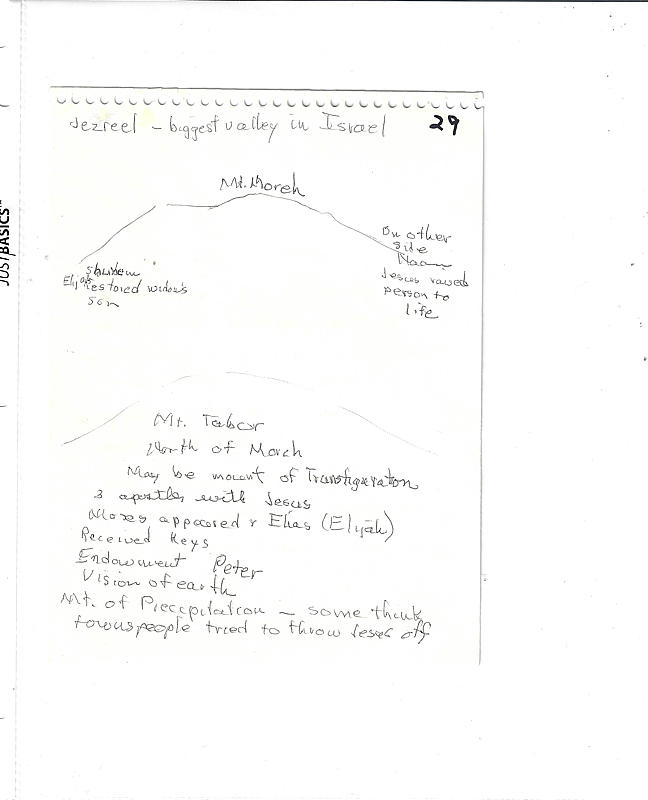 Jezreel - biggest valley in Israel 29
Mt. Moreh
On other
side
Naan
Jesus raised
person to
life
Shunem
Elijah restored widow's
son
Mt. Tabor
North of Moreh
May be mount of Transfiguration
3 apostles with Jesus
Moses appeared & Elias (Elijah)
Received Keys
Endowment Peter
Vision of earth
Mt. of Precipitation - some think
townspeople tried to throw Jesus off
JUST BASICS™